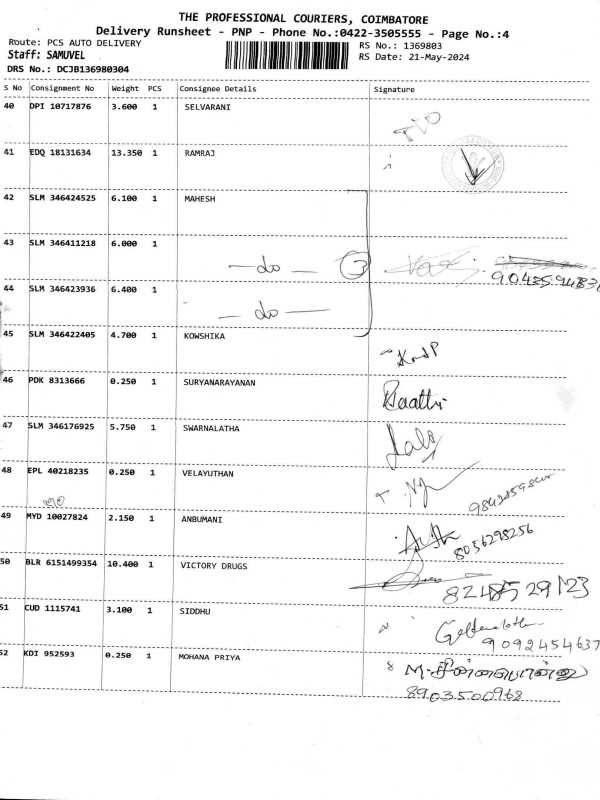 THE PROFESSIONAL COURIERS, COIMBATORE
Delivery Runsheet - PNP - Phone No.:0422-3505555 - Page No.:4
Route: PCS AUTO DELIVERY
RS No.: 1369803
Staff: SAMUVEL
RS Date: 21-May-2024
DRS No.: DCJB136980304
S No Consignment No Weight PCS Consignee Details Signature
40 DPI 10717876 3.600 1 SELVARANI
41 EDQ 18131634 13.350 1 RAMRAJ
42 SLM 346424525 6.100 1 MAHESH
43 SLM 346411218 6.000 1
— do — 3
90435948
44 SLM 346423936 6.400 1
— do —
45 SLM 346422405 4.700 1 KOWSHIKA
46 PDK 8313666 0.250 1 SURYANARAYANAN
47 SLM 346176925 5.750 1 SWARNALATHA
48 EPL 40218235 0.250 1 VELAYUTHAN
49 MYD 10027824 2.150 1 ANBUMANI
8056298256
50 BLR 6151499354 10.400 1 VICTORY DRUGS
8248529123
51 CUD 1115741 3.100 1 SIDDHU
9092454637
52 KDI 952593 0.250 1 MOHANA PRIYA
M. சின்னபொன்னு
8903500968